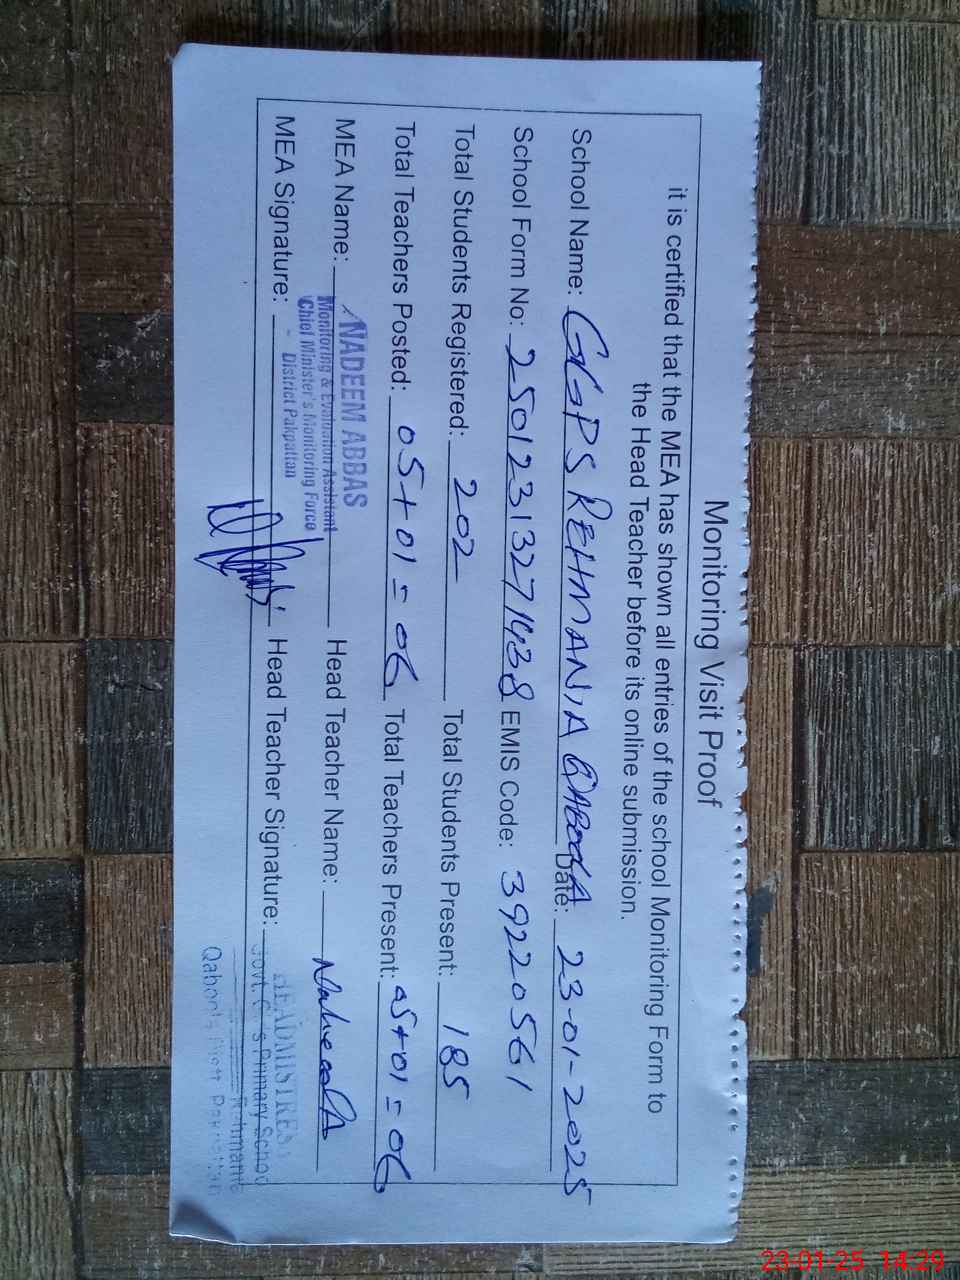 Monitoring Visit Proof
it is certified that the MEA has shown all entries of the school Monitoring Form to
the Head Teacher before its online submission.
School Name: GGPS REHMANIA QABOOLA Date: 23-01-2025
School Form No: 25012313271438 EMIS Code: 39220561
Total Students Registered: 202 Total Students Present: 185
Total Teachers Posted: 05+01=06 Total Teachers Present: 05+01=06
MEA Name: NADEEM ABBAS Head Teacher Name:
Monitoring & Evaluation Assistant
Chief Minister's Monitoring Force
District Pakpattan
MEA Signature: Head Teacher Signature:
HEADMISTRESS
Govt. Girls Primary School
Rehmania
23-01-25 14:29